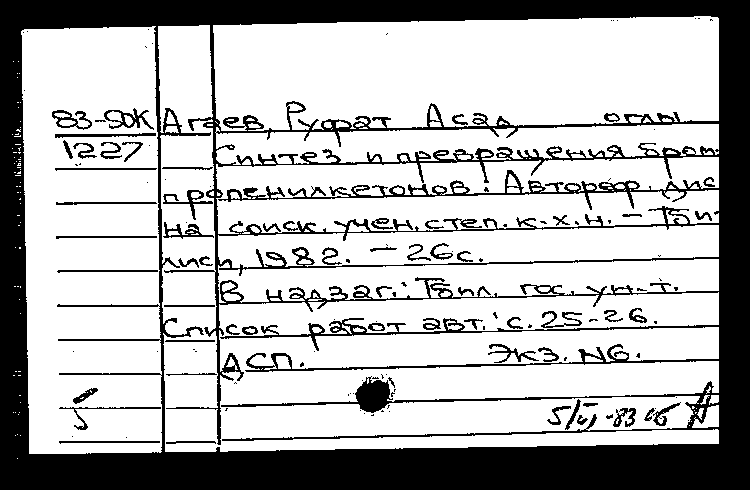 83-5ОК Агаев, Руфат Асад оглы
1227 Синтез и превращения бром-
пропенилкетонов: Автореф. дис
на соиск. учен. степ. к.х.н. - Тби-
лиси, 1982. - 26с.
В надзаг.: Тбил. гос. ун-т.
Список работ авт.: с. 25-26.
ДСП. Экз. N6.